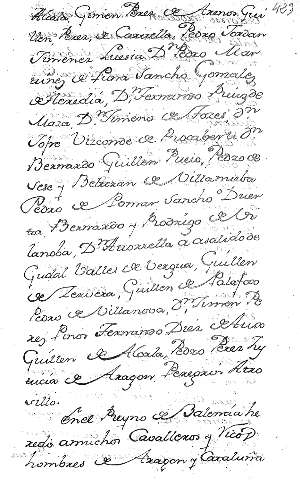 423
Alcala, Gimen Perez de Arenos Gui
llen Perez, de Caverella, Pedro Jordan
Ximenez Luesia Dn. Pedro Mar
tinez de Luna Sancho Gonzalez
de Heredia, Dn. Fernando Ruiz de
Maza Dn. Timeno de Foces, Dn.
Jofre Vizconde de Rocaberti Dn
Bernardo Guillen Pueio, Pedro de
Sese y Beltran de Villanueba
Pedro de Pomar Sancho Duer
ta, Bernardo y Rodrigo de Vi
lanoba, Dn. Assalido de
Gudal Valles de Vergua, Guillen
de Zervera, Guillen de Palafox
Pedro de Villanova, Dn. Simon Pe
rez Pinos Fernando Diez de Aux
Guillen de Alcala, Pedro Perez Ty
de Aragon Peregrin Atro
sillo.
Enel Reyno de Balencia he
redò amuchos Cavalleros y Ricos
hombres de Aragon y Cataluña